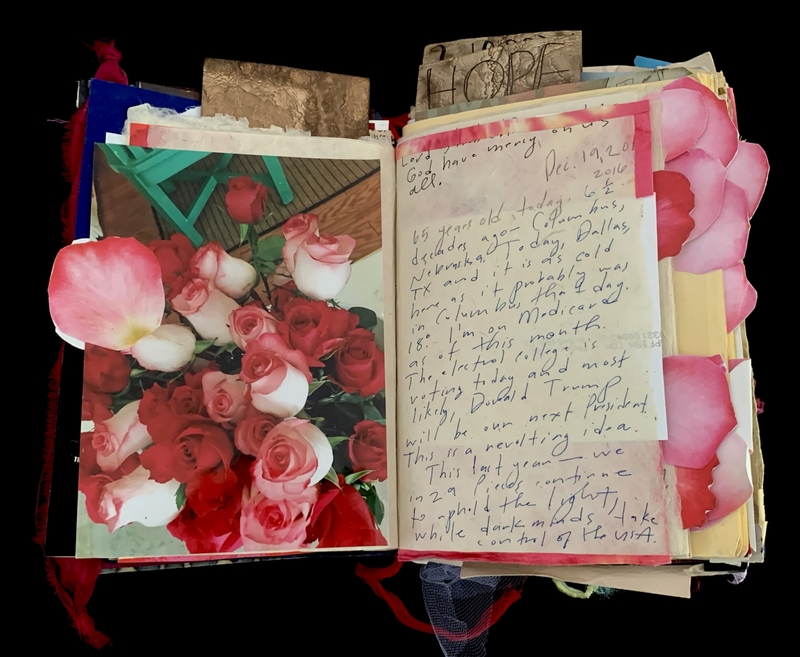 HOPE
Lord
God have mercy on us
all.
Dec. 19, 201
2016
65 years old today, 6 1/2
decades ago Columbus,
Nebraska. Today, Dallas,
TX and it is as cold
here as it probably was
in Columbus that day.
18° I'm on Medicare
as of this month.
The electoral college is
voting today and most
likely, Donald Trump
will be our next President.
This is a revolting idea.
This last year — we
in 29 Pieces continue
to uphold the light,
while dark minds take
control of the USA.